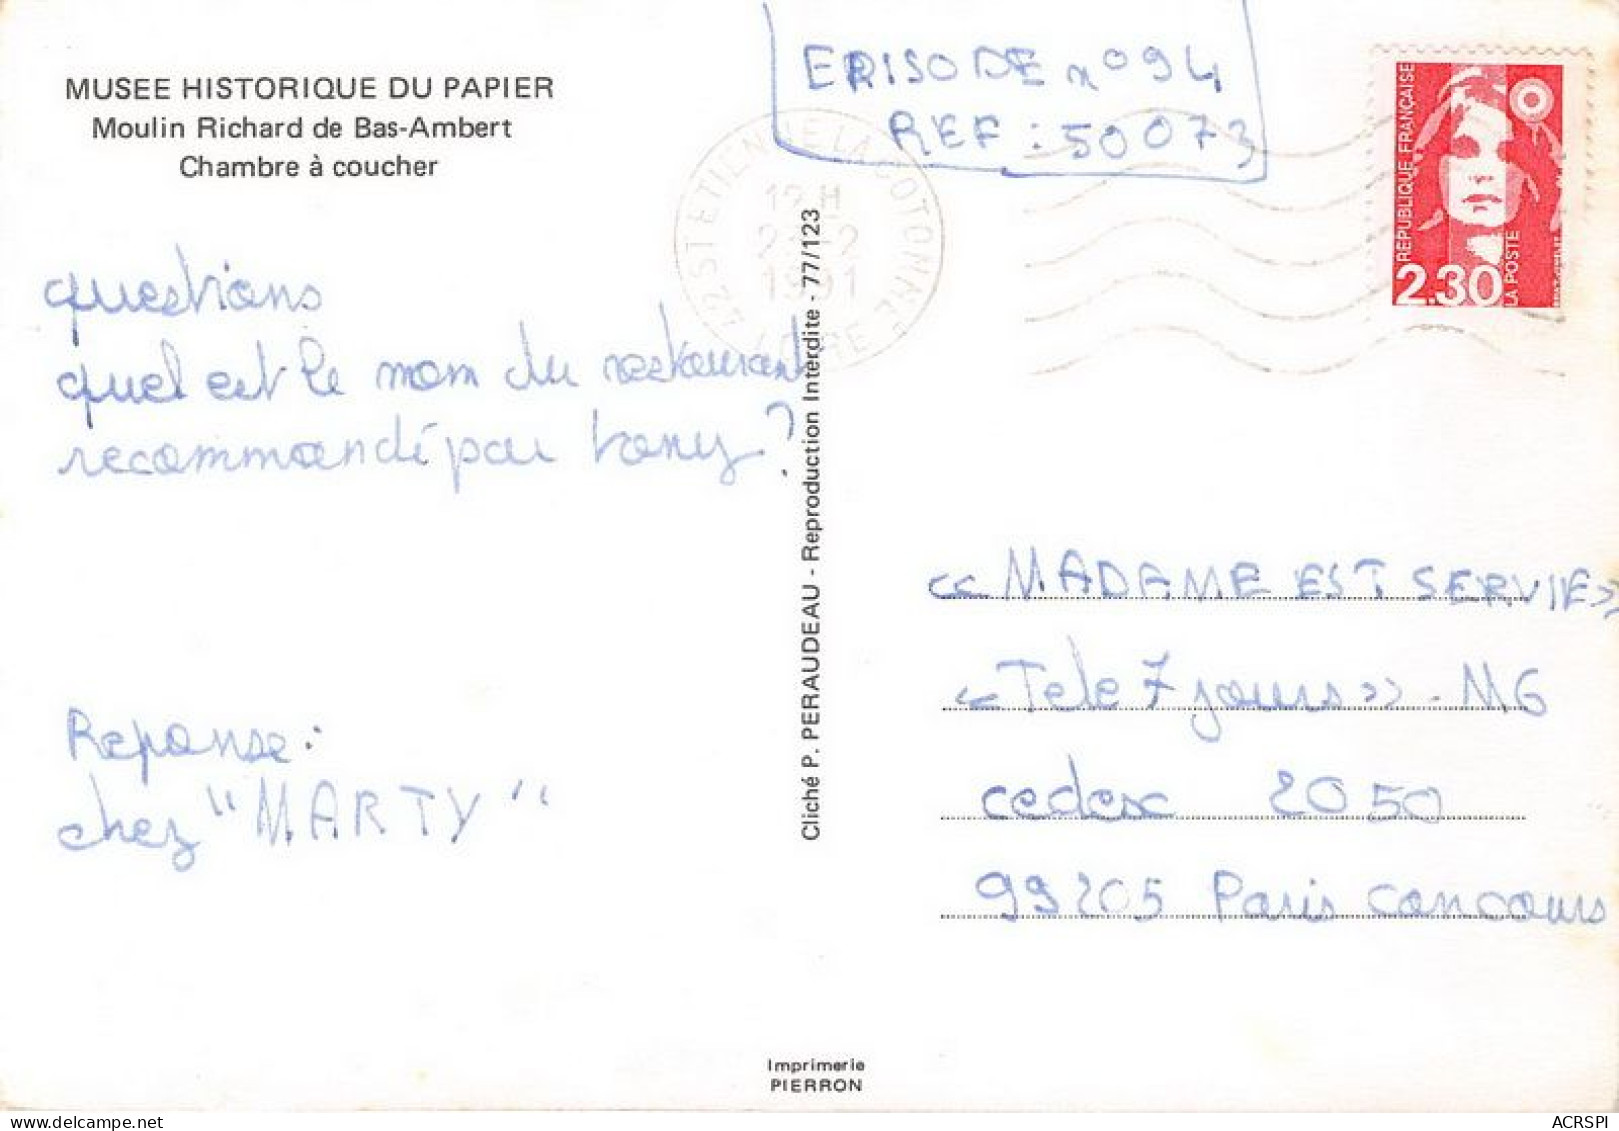 MUSEE HISTORIQUE DU PAPIER
Moulin Richard de Bas-Ambert
Chambre à coucher
EPISODE n° 94
REF : 50073
12 H
1991
LOIRE
REPUBLIQUE FRANÇAISE
LA POSTE
2.30
questions
quel est le nom du restaurant
recommandé par tony ?
Reponse :
chez "MARTY"
Cliché P. PERAUDEAU - Reproduction Interdite - 77/123
« MADAME EST SERVIE »
« Tele 7 jours » - M6
cedex 2050
99205 Paris concours
Imprimerie
PIERRON
ACRSPI